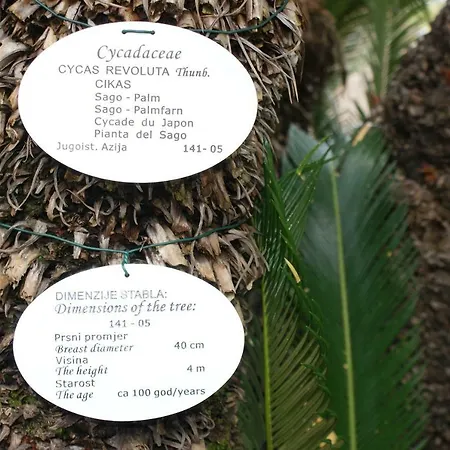 Cycadaceae
CYCAS REVOLUTA Thunb.
CIKAS
Sago - Palm
Sago - Palmfarn
Cycade du Japon
Pianta del Sago
Jugoist. Azija 141-05
DIMENZIJE STABLA:
Dimensions of the tree:
141 - 05
Prsni promjer
Breast diameter 40 cm
Visina
The height 4 m
Starost
The age ca 100 god/years